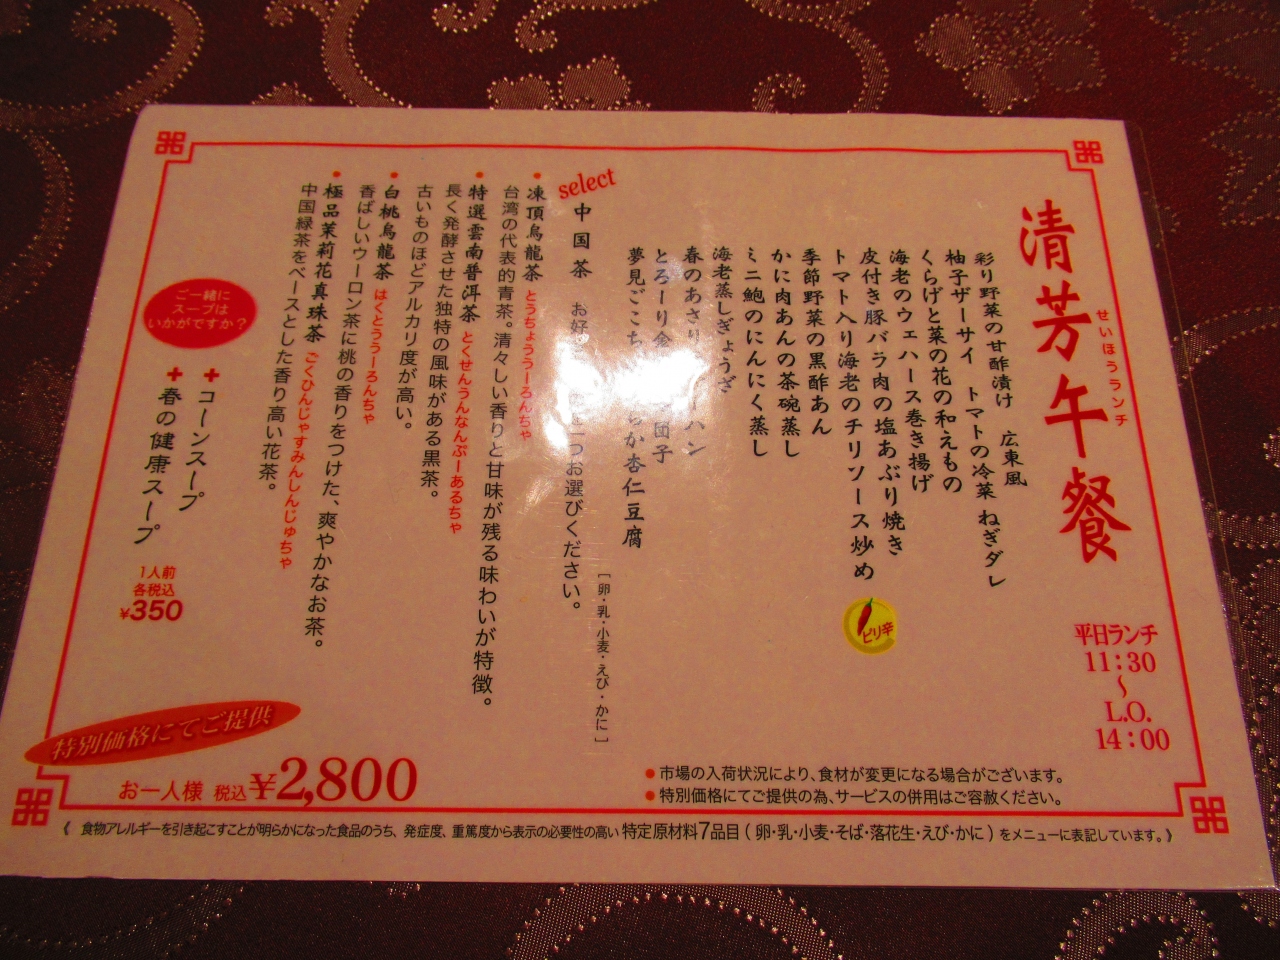 清芳午餐
せいほうランチ
平日ランチ
11:30
〜
L.O.
14:00
彩り野菜の甘酢漬け 広東風
柚子ザーサイ トマトの冷菜 ねぎダレ
くらげと菜の花の和えもの
海老のウェハース巻き揚げ
皮付き豚バラ肉の塩あぶり焼き
トマト入り海老のチリソース炒め
ピリ辛
季節野菜の黒酢あん
かに肉あんの茶碗蒸し
ミニ鮑のにんにく蒸し
海老蒸しぎょうざ
春のあさり ーハン
とろーり金 団子
夢見ごこち か杏仁豆腐
[卵・乳・小麦・えび・かに]
select
中国茶 お好 を一つお選びください。
●凍頂烏龍茶 とうちょううーろんちゃ
台湾の代表的青茶。清々しい香りと甘味が残る味わいが特徴。
●特選雲南普洱茶 とくせんうんなんぷーあるちゃ
長く発酵させた独特の風味がある黒茶。
古いものほどアルカリ度が高い。
●白桃烏龍茶 はくとううーろんちゃ
香ばしいウーロン茶に桃の香りをつけた、爽やかなお茶。
●極品茉莉花真珠茶 ごくひんじゃすみんしんじゅちゃ
中国緑茶をベースとした香り高い花茶。
ご一緒に
スープは
いかがですか?
+コーンスープ
+春の健康スープ
1人前
各税込
¥350
特別価格にてご提供
お一人様 税込¥2,800
●市場の入荷状況により、食材が変更になる場合がございます。
●特別価格にてご提供の為、サービスの併用はご容赦ください。
《 食物アレルギーを引き起こすことが明らかになった食品のうち、発症度、重篤度から表示の必要性の高い 特定原材料7品目(卵・乳・小麦・そば・落花生・えび・かに)をメニューに表記しています。》